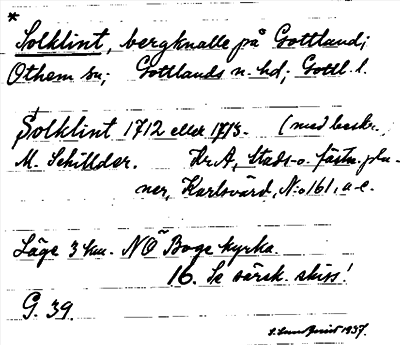 *
Solklint, bergknalle på Gottland;
Othem sn; Gottlands n. hd; Gottl. l.
Solklint 1712 eller 1713. (med beskr.,
M. Schillder. Kr. A, Stads- o. fästn.pla-
ner, Karlsvärd, N:o 161, a-c.
Läge 3 km. NÖ Boge kyrka.
16. Se särsk. skiss!
G. 39.
1937.